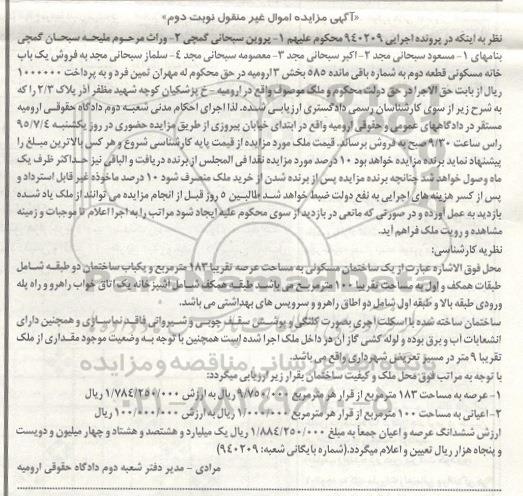 «آگهی مزایده اموال غیر منقول نوبت دوم»
نظر به اینکه در پرونده اجرایی ۹۴۰۲۰۹ محکوم علیهم ۱- پروین سبحانی گمچی ۲- وراث مرحوم ملیحه سبحان گمچی
بنامهای ۱- مسعود سبحانی مجد ۲- اکبر سبحانی مجد ۳- معصومه سبحانی مجد ۴- سلماز سبحانی مجد به فروش یک باب
خانه مسکونی قطعه دوم به شماره باقی مانده ۵۸۵ بخش ۳ ارومیه در حق محکوم له مهران ثمین فرد و به پرداخت ۱۰۰۰۰۰۰
ریال از بابت حق الاجرا در حق دولت محکوم و ملک موصوف واقع در ارومیه - خ پزشکیان کوچه شهید مظفر آذر پلاک ۲/۳ را که
به شرح زیر از سوی کارشناسان رسمی دادگستری ارزیابی شده. لذا اجرای احکام مدنی شعبه دوم دادگاه حقوقی ارومیه
مستقر در دادگاههای عمومی و حقوقی ارومیه واقع در ابتدای خیابان پیروزی از طریق مزایده حضوری در روز یکشنبه ۹۵/۷/۴
راس ساعت ۹/۳۰ صبح به فروش برساند. قیمت ملک مورد مزایده از قیمت پایه کارشناسی شروع و هر کس بالاترین مبلغ را
پیشنهاد نماید برنده مزایده خواهد بود ۱۰ درصد مورد مزایده نقدا فی المجلس از برنده دریافت و الباقی نیز حداکثر ظرف یک
ماه وصول خواهد شد چنانچه برنده مزایده پس از برنده شدن از خرید ملک منصرف شود ۱۰ درصد ماخوذه غیر قابل استرداد و
پس از کسر هزینه های اجرایی به نفع دولت ضبط خواهد شد طالبین ۵ روز قبل از انجام مزایده می توانند از ملک یاد شده
بازدید به عمل آورده و در صورتی که مانعی در بازدید از سوی محکوم علیه ایجاد شود مراتب را به اجرا اعلام تا موجبات و زمینه
مشاهده و رویت ملک فراهم آید.
نظریه کارشناسی:
محل فوق الاشاره عبارت از یک ساختمان مسکونی به مساحت عرصه تقریبا ۱۸۳ مترمربع و یکباب ساختمان دو طبقه شامل
طبقات همکف و اول به مساحت تقریبا ۱۰۰ مترمربع می باشد طبقه همکف شامل آشپزخانه یک اتاق خواب راهرو و راه پله
ورودی طبقه بالا و طبقه اول شامل دو اطاق راهرو و سرویس های بهداشتی می باشد.
ساختمان ساخته شده با اسکلت آجری بصورت کلنگی و پوشش سقف چوبی و شیروانی فاقد نماسازی و همچنین دارای
انشعابات آب و برق بوده و لوله کشی گاز آن در داخل ملک اجرا شده است همچنین با توجه به وضعیت موجود مقداری از ملک
تقریبا ۹ متر در مسیر تعریض شهرداری واقع می باشد.
با توجه به مراتب فوق محل ملک و کیفیت ساختمان بقرار زیر ارزیابی میگردد:
۱- عرصه به مساحت ۱۸۳ مترمربع از قرار هر مترمربع ۹/۷۵۰/۰۰۰ ریال به ارزش ۱/۷۸۴/۲۵۰/۰۰۰ ریال
۲- اعیانی به مساحت ۱۰۰ مترمربع از قرار هر مترمربع ۱/۰۰۰/۰۰۰ ریال به ارزش ۱۰۰/۰۰۰/۰۰۰ ریال
ارزش ششدانگ عرصه و اعیان جمعاً به مبلغ ۱/۸۸۴/۲۵۰/۰۰۰ ریال یک میلیارد و هشتصد و هشتاد و چهار میلیون و دویست
و پنجاه هزار ریال تعیین و اعلام میگردد.(شماره بایگانی شعبه: ۹۴۰۲۰۹)
مرادی - مدیر دفتر شعبه دوم دادگاه حقوقی ارومیه